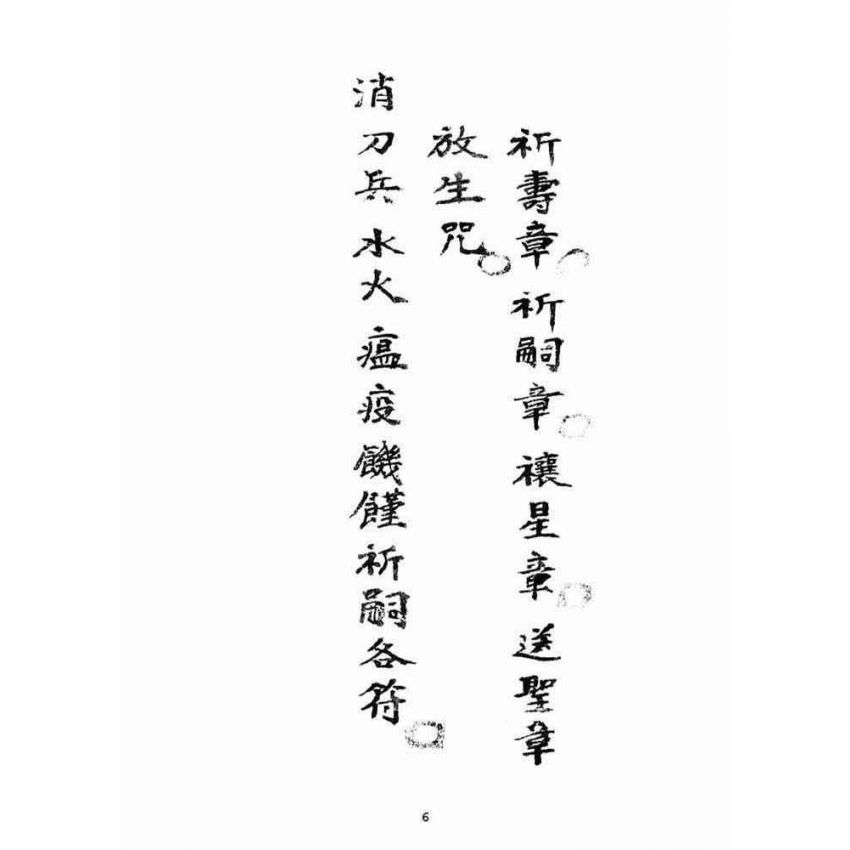 祈壽章 祈嗣章 禳星章 送聖章
放生咒
消刀兵水火瘟疫饑饉祈嗣各符
6